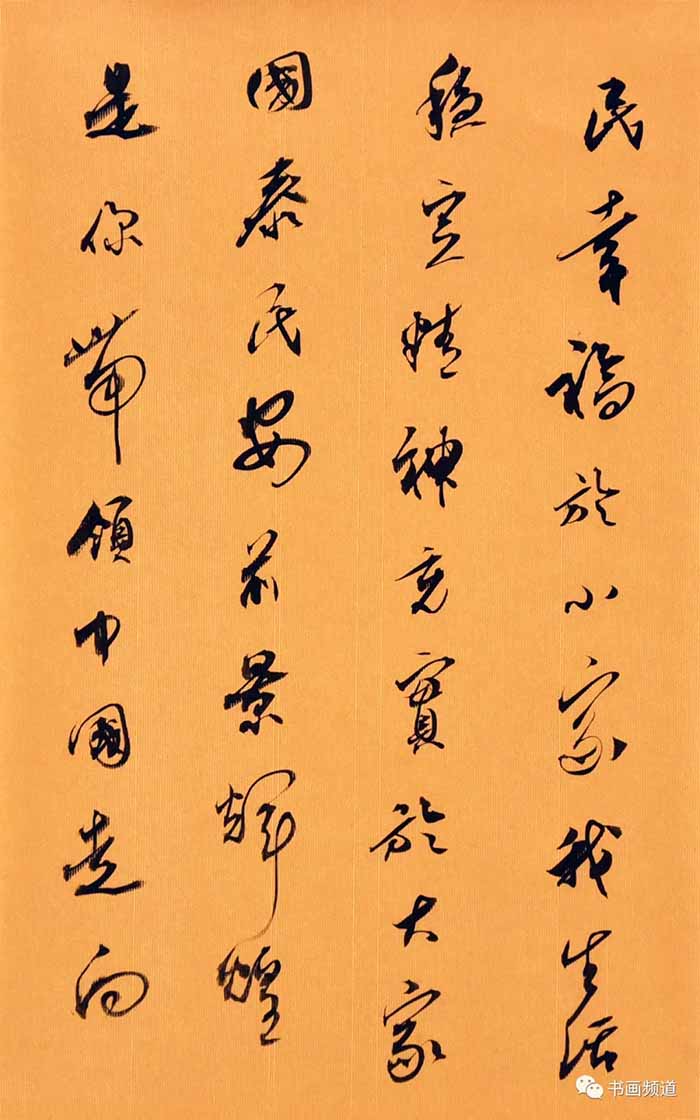 民幸福於小家我生活
穩定精神充實於大家
國泰民安前景輝煌
是你带領中國走向
书画频道